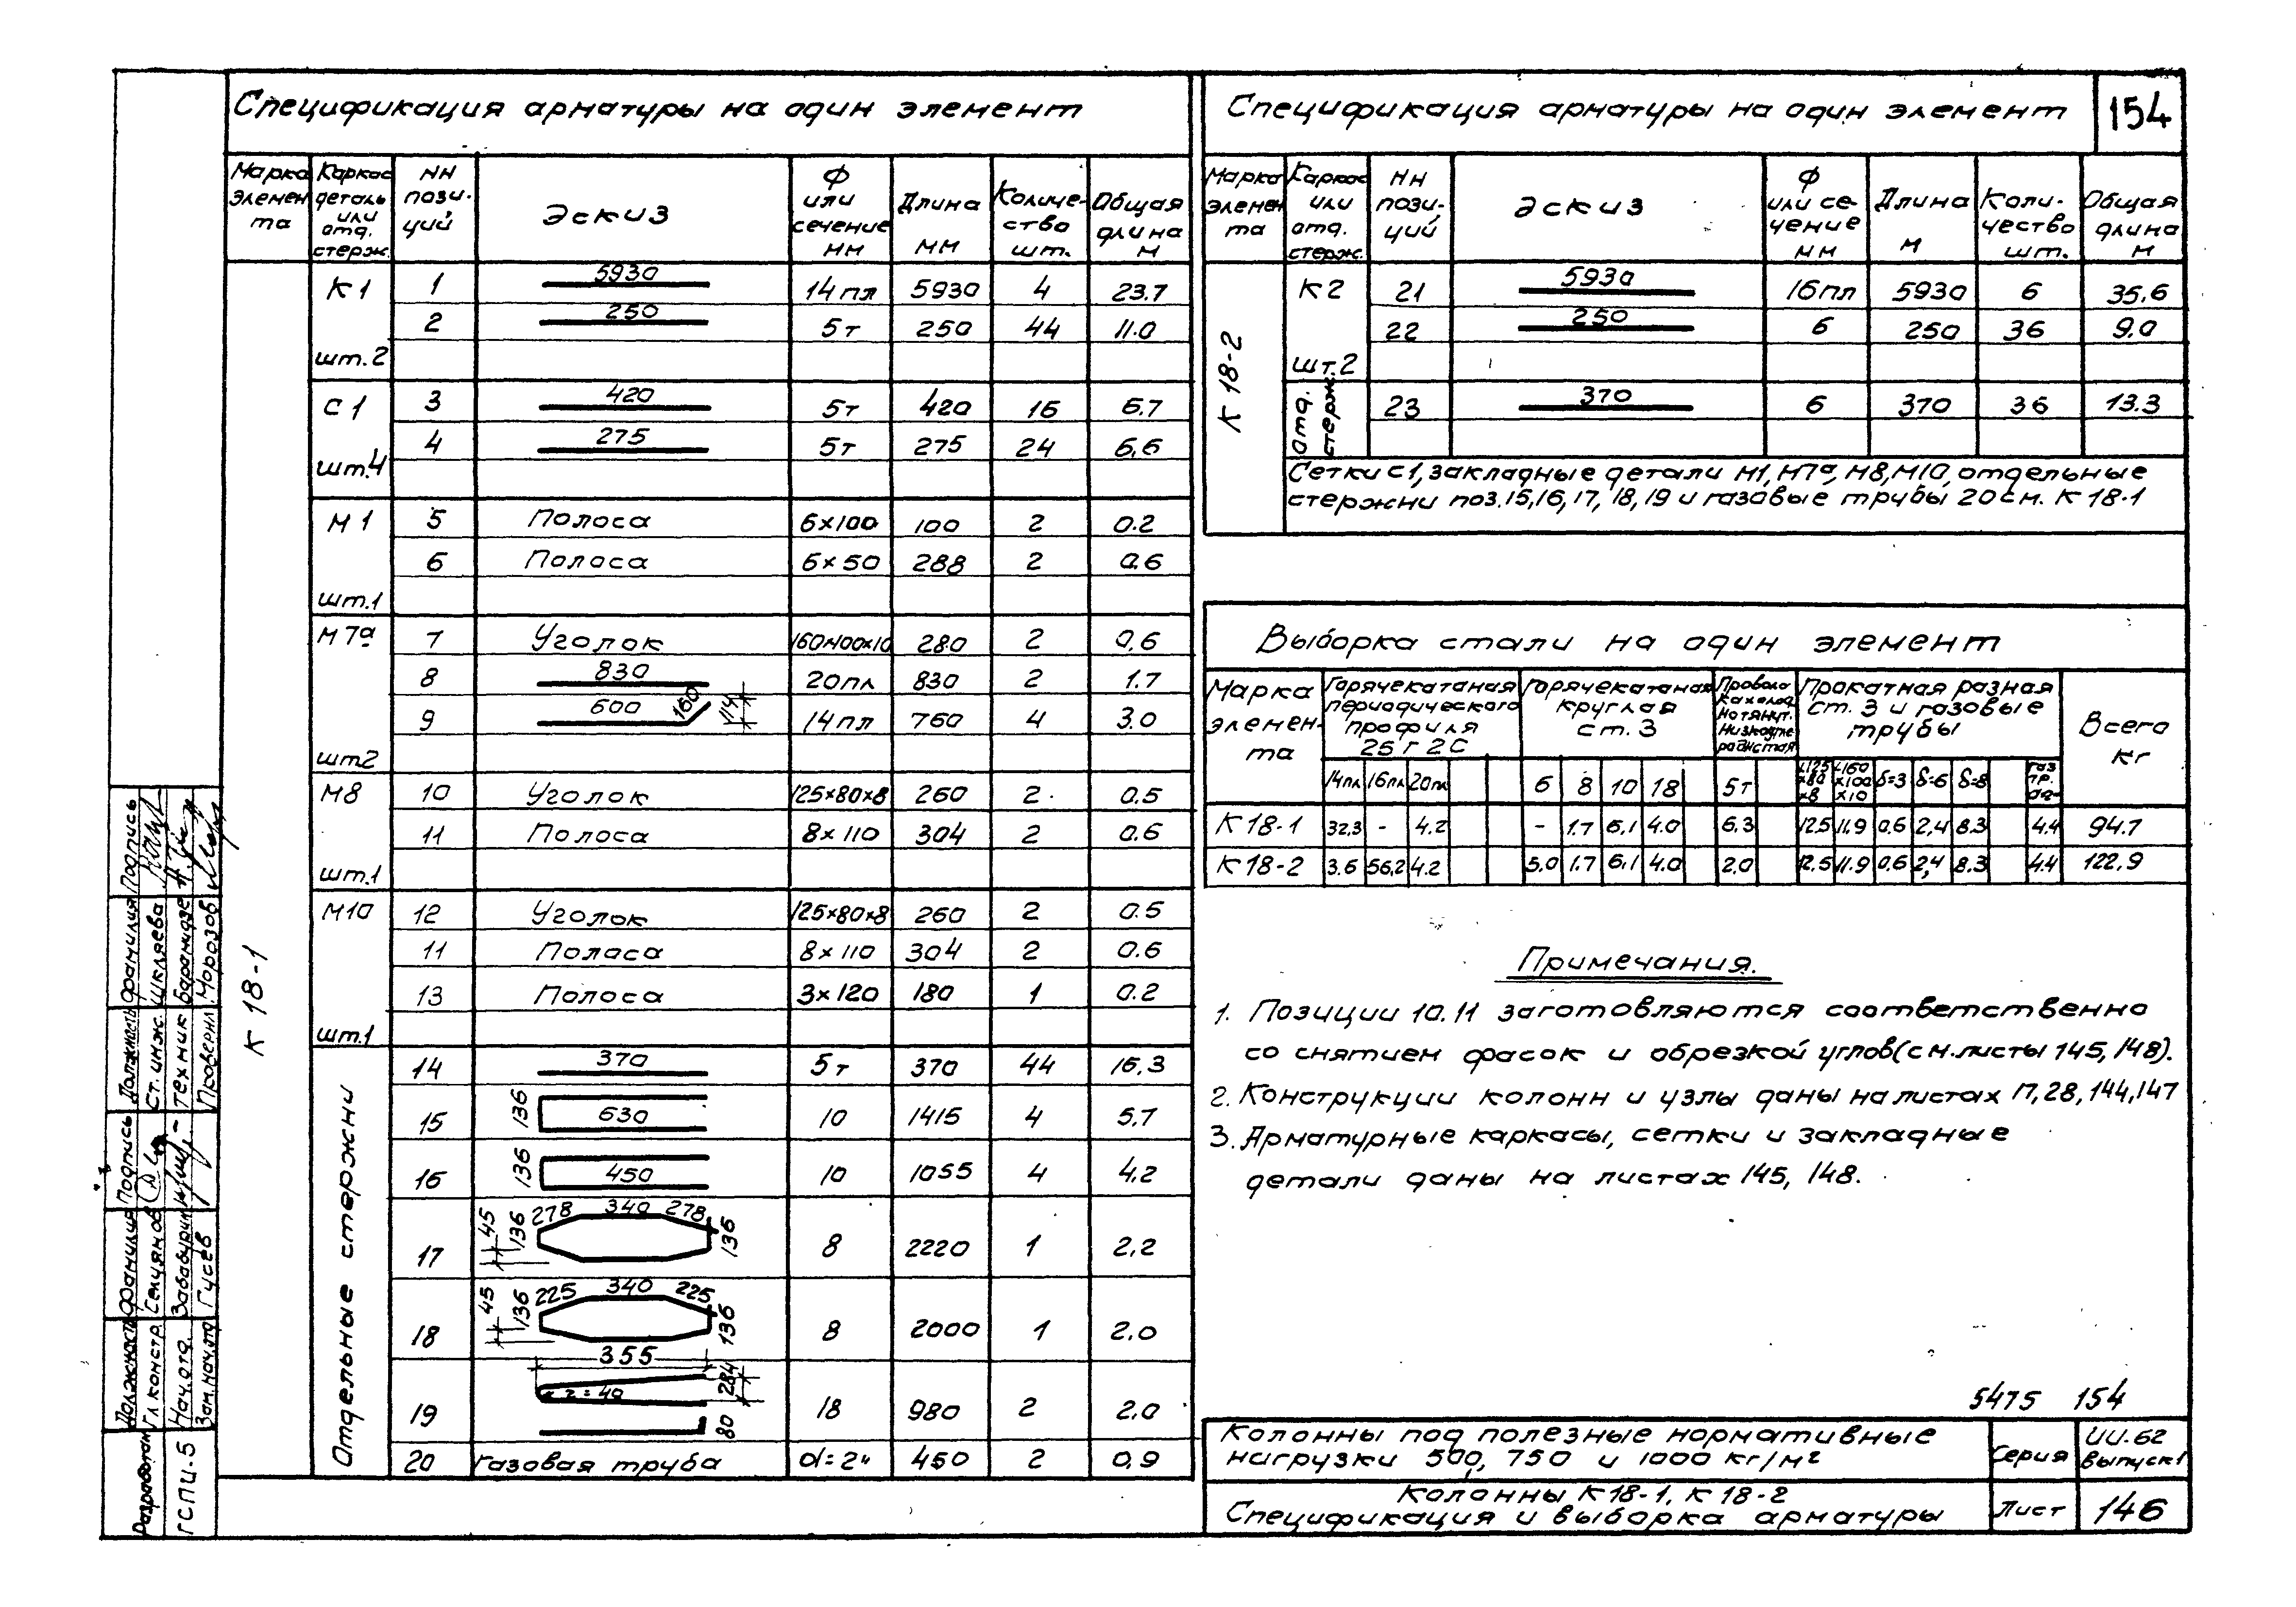 Спецификация арматуры на один элемент
Марка элемен та | Каркас деталь или отд. стерж. | NN пози- ций | Эскиз | Ф или сечение мм | Длина мм | Количе- ство шт. | Общая длина м
К 18-1
К1 шт.2
1 | 5930 | 14пл | 5930 | 4 | 23.7
2 | 250 | 5т | 250 | 44 | 11.0
С1 шт.4
3 | 420 | 5т | 420 | 16 | 6.7
4 | 275 | 5т | 275 | 24 | 6.6
М1 шт.1
5 | Полоса | 6×100 | 100 | 2 | 0.2
6 | Полоса | 6×50 | 288 | 2 | 0.6
М7а шт2
7 | Уголок | 160×100×10 | 280 | 2 | 0.6
8 | 830 | 20пл | 830 | 2 | 1.7
9 | 600 160 114 | 14пл | 760 | 4 | 3.0
М8 шт.1
10 | Уголок | 125×80×8 | 260 | 2 | 0.5
11 | Полоса | 8×110 | 304 | 2 | 0.6
М10 шт.1
12 | Уголок | 125×80×8 | 260 | 2 | 0.5
11 | Полоса | 8×110 | 304 | 2 | 0.6
13 | Полоса | 3×120 | 180 | 1 | 0.2
Отдельные стержни
14 | 370 | 5т | 370 | 44 | 16.3
15 | 136 630 | 10 | 1415 | 4 | 5.7
16 | 136 450 | 10 | 1055 | 4 | 4.2
17 | 45 136 278 340 278 136 | 8 | 2220 | 1 | 2.2
18 | 45 136 225 340 225 136 | 8 | 2000 | 1 | 2.0
19 | 355 284 r=40 80 | 18 | 980 | 2 | 2.0
20 | газовая труба | d=2" | 450 | 2 | 0.9
Спецификация арматуры на один элемент
154
Марка элемен та | Каркас или отд. стерж. | NN пози- ций | Эскиз | Ф или се- чение мм | Длина м | Коли- чество шт. | Общая длина м
К 18-2
К2 шт.2
21 | 5930 | 16пл | 5930 | 6 | 35.6
22 | 250 | 6 | 250 | 36 | 9.0
отд. стерж.
23 | 370 | 6 | 370 | 36 | 13.3
Сетки С1, закладные детали М1, М7а, М8, М10, отдельные
стержни поз.15,16,17,18,19 и газовые трубы 20 см. К 18-1
Выборка стали на один элемент
Марка элемен- та | Горячекатаная периодического профиля 25Г2С | Горячекатаная круглая ст.3 | Прокатная разная ст.3 и газовые трубы | Всего кг
14пл | 16пл | 20пл | 6 | 8 | 10 | 18 | 5т | ∟125 ×80 ×8 | ∟160 ×100 ×10 | δ=3 | δ=6 | δ=8
К 18-1 | 32.3 | - | 4.2 | - | 1.7 | 6.1 | 4.0 | 6.3 | 12.5 | 11.9 | 0.6 | 2.4 | 8.3 | 4.4 | 94.7
К 18-2 | 3.6 | 56.2 | 4.2 | 5.0 | 1.7 | 6.1 | 4.0 | 2.0 | 12.5 | 11.9 | 0.6 | 2.4 | 8.3 | 4.4 | 122.9
Примечания.
1. Позиции 10.11 заготовляются соответственно
со снятием фасок и обрезкой углов (см.листы 145, 148).
2. Конструкции колонн и узлы даны на листах П, 28, 144, 147
3. Арматурные каркасы, сетки и закладные
детали даны на листах 145, 148.
5475 154
Колонны под полезные нормативные
нагрузки 500, 750 и 1000 кг/м²
Серия
ИИ-62
выпуск1
Колонны К 18-1, К 18-2
Спецификация и выборка арматуры
Лист
146
Разработан
ГСПИ-5
Должность Фамилия Подпись
Гл констр.
Нач.отд.
Зам.нач.отд Гусев
Должность Фамилия Подпись
Ст. инж. Шкляева
Техник
Проверил Морозов